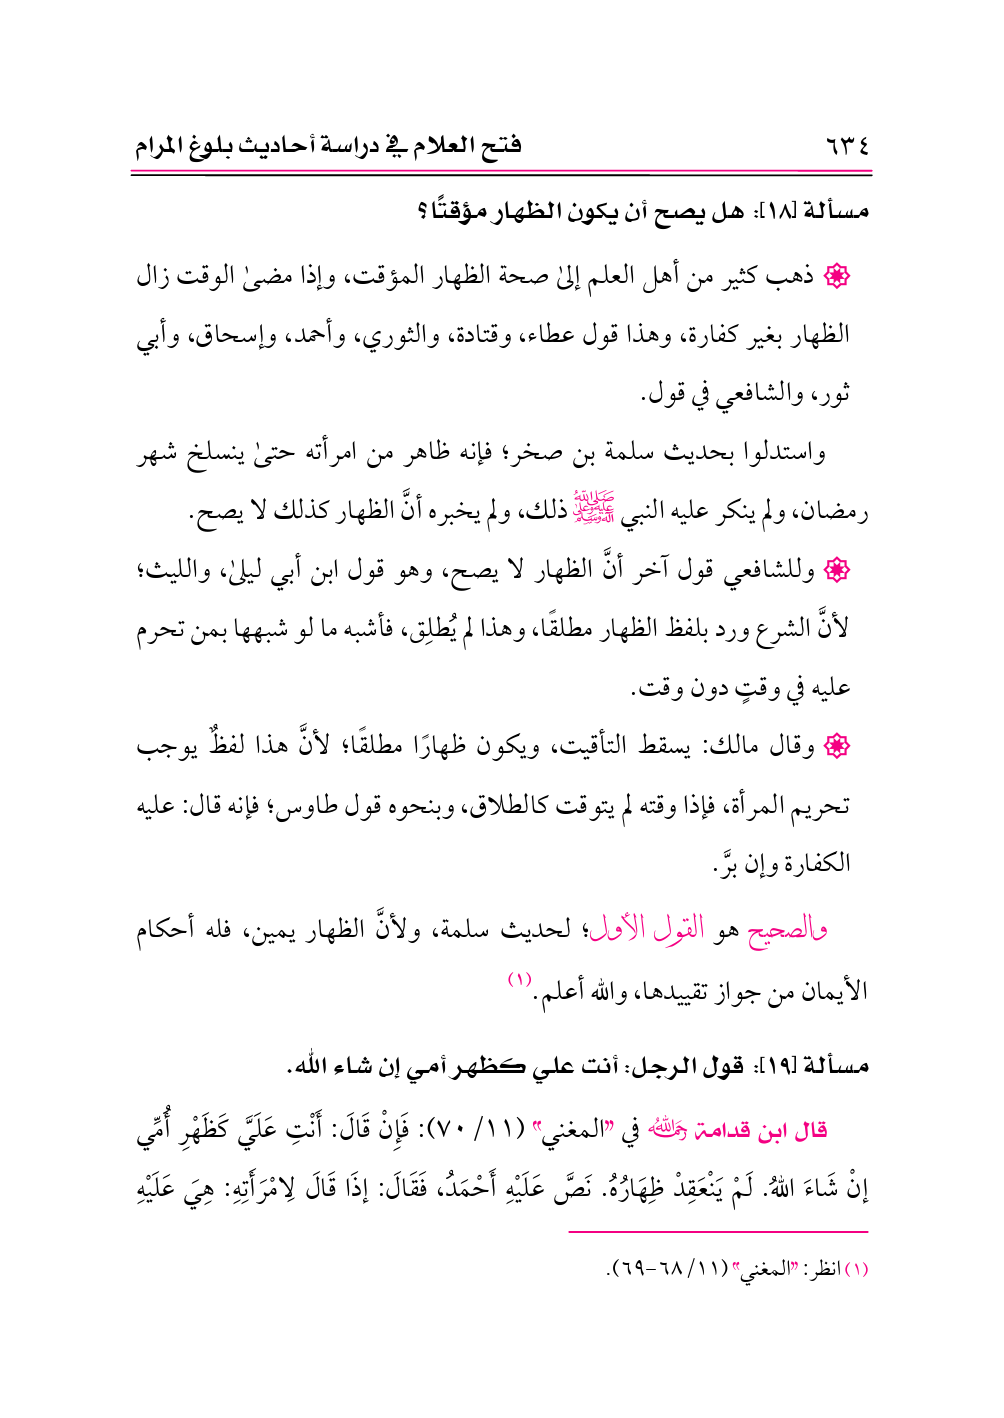 ٦٣٤
فتح العلام في دراسة أحاديث بلوغ المرام
مسألة [١٨]: هل يصح أن يكون الظهار مؤقتًا؟
ذهب كثير من أهل العلم إلىٰ صحة الظهار المؤقت، وإذا مضىٰ الوقت زال
الظهار بغير كفارة، وهذا قول عطاء، وقتادة، والثوري، وأحمد، وإسحاق، وأبي
ثور، والشافعي في قول.
واستدلوا بحديث سلمة بن صخر؛ فإنه ظاهر من امرأته حتىٰ ينسلخ شهر
رمضان، ولم ينكر عليه النبي صلى الله عليه وعلى آله وسلم ذلك، ولم يخبره أنَّ الظهار كذلك لا يصح.
وللشافعي قول آخر أنَّ الظهار لا يصح، وهو قول ابن أبي ليلىٰ، والليث؛
لأنَّ الشرع ورد بلفظ الظهار مطلقًا، وهذا لم يُطلِق، فأشبه ما لو شبهها بمن تحرم
عليه في وقتٍ دون وقت.
وقال مالك: يسقط التأقيت، ويكون ظهارًا مطلقًا؛ لأنَّ هذا لفظٌ يوجب
تحريم المرأة، فإذا وقته لم يتوقت كالطلاق، وبنحوه قول طاوس؛ فإنه قال: عليه
الكفارة وإن برَّ.
والصحيح هو القول الأول؛ لحديث سلمة، ولأنَّ الظهار يمين، فله أحكام
الأيمان من جواز تقييدها، والله أعلم.(١)
مسألة [١٩]: قول الرجل: أنت علي كظهر أمي إن شاء الله.
قال ابن قدامة رحمه الله في "المغني" (١١/ ٧٠): فَإِنْ قَالَ: أَنْتِ عَلَيَّ كَظَهْرِ أُمِّي
إنْ شَاءَ اللهُ. لَمْ يَنْعَقِدْ ظِهَارُهُ. نَصَّ عَلَيْهِ أَحْمَدُ، فَقَالَ: إذَا قَالَ لِامْرَأَتِهِ: هِيَ عَلَيْهِ
(١) انظر: "المغني" (١١/ ٦٨-٦٩).